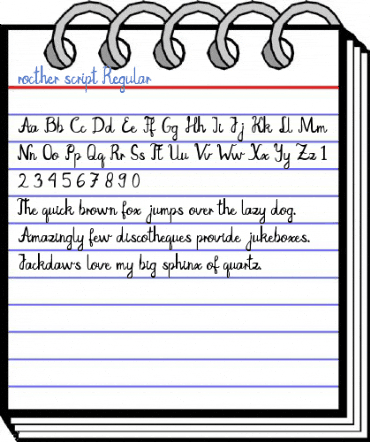 rocther script Regular
Aa Bb Cc Dd Ee Ff Gg Hh Ii Jj Kk Ll Mm
Nn Oo Pp Qq Rr Ss Tt Uu Vv Ww Xx Yy Zz 1
2 3 4 5 6 7 8 9 0
The quick brown fox jumps over the lazy dog.
Amazingly few discotheques provide jukeboxes.
Jackdaws love my big sphinx of quartz.